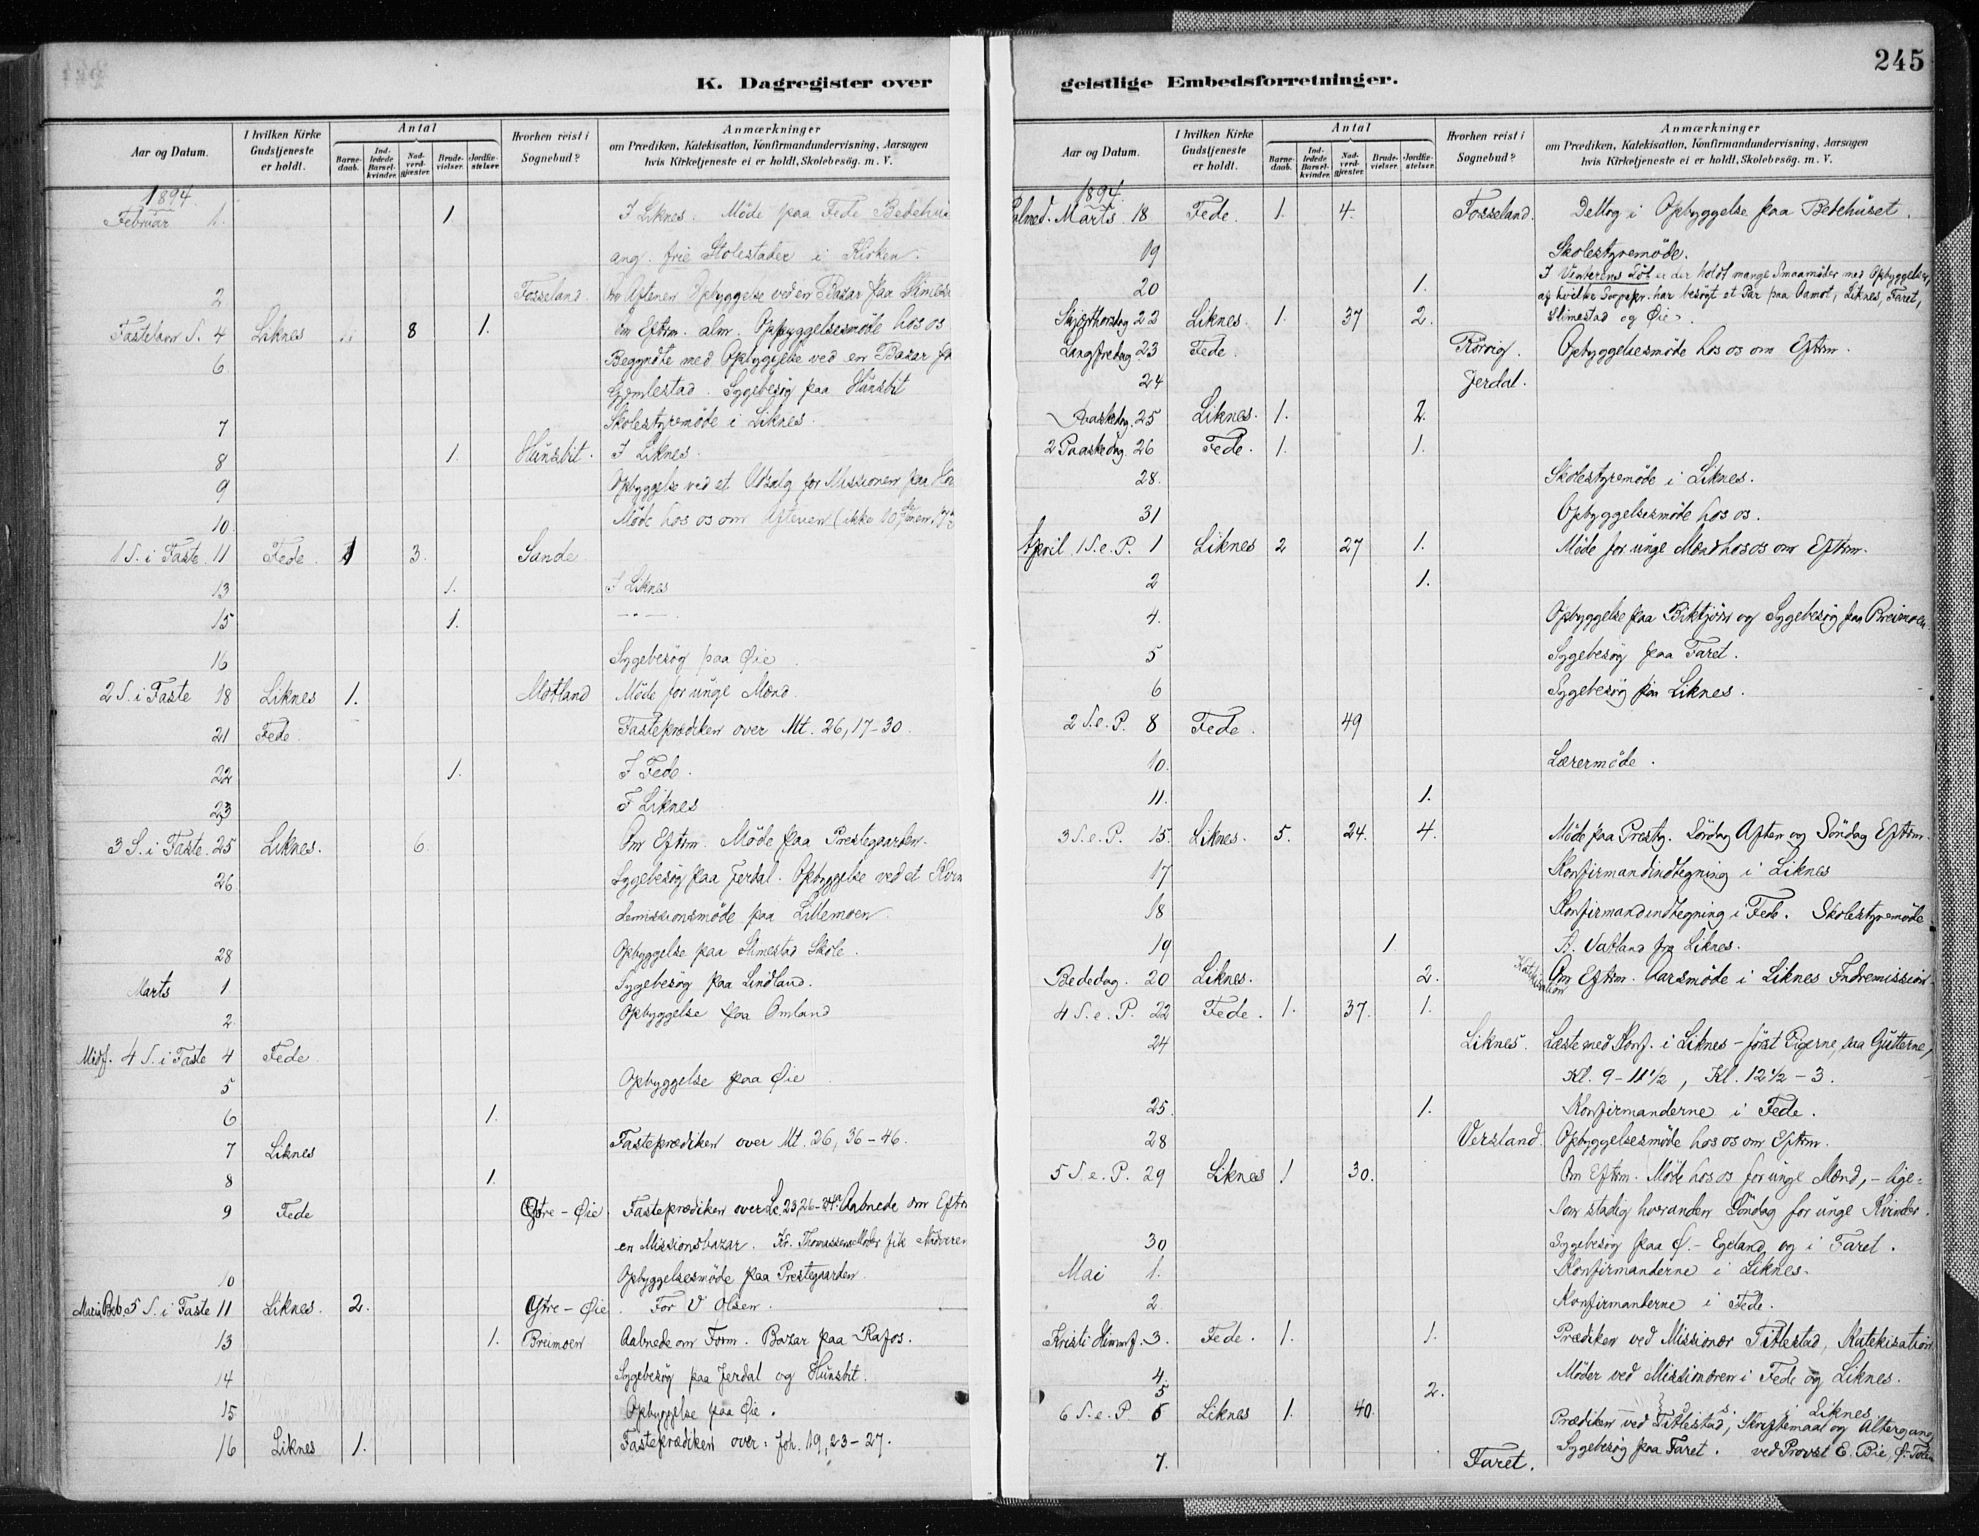 K. Dagregister over
Aar og Datum. I hvilken Kirke Gudstjeneste er holdt. Antal Barnedaab. Indledede Barselkvinder. Nadverdgjæster. Brudevielser. Jordfæstelser. Hvorhen reist i Sognebud? Anmærkninger om Prædiken, Katekisation, Konfirmandundervisning, Aarsagen hvis Kirketjeneste ei er holdt, Skolebesøg. m. V.
1894.
Februar 1. 1. I Liknes. Møde paa Fede
ang. frie Stolestader i Kirken.
2 Fosseland. Aftenen Opbyggelse ved en Bazar paa
Fastelavn S. 4 Liknes 8 1. Eftrm. alm. Opbyggelsesmøde hos os
6 Begyndte med Opbyggelse ved en Bazar
Sygebesøg paa Hunsbit
7 Skolestyremøde i Liknes.
8 1. Hunsbit. I Liknes.
9 Opbyggelse ved et Udsalg for Missionen paa
10 Møde hos os om Aftenen (ikke
1 S. i Faste 11 Fede. 3. Sande
13 1. I Liknes
15 1. — " —
16 Sygebesøg paa Øie
2 S. i Faste 18 Liknes 1. Motland Møde for unge Mænd.
21 Fede. Fasteprædiken over Mt. 26, 17-30
22 1. I Fede.
23 I Liknes
3 S. i Faste. 25 Liknes. 6 Om Eftrm. Møde paa Prestegaarden.
26. Sygebesøg paa Jerdal. Opbyggelse ved et
demissionsmøde paa Lillemoen.
28 Opbyggelse paa Slimestad Skole.
Marts 1 Sygebesøg paa Lindland.
2. Opbyggelse paa Omland
Midf. 4 S. i Faste 4 Fede.
5 Opbyggelse paa Øie
6 1.
7 Liknes Fasteprædiken over Mt. 26, 36-46.
8 1.
9 Fede Ytre-Øie. Fasteprædiken over Aabnede om
en Missionsbazar. Kr. Thomassens Moder fik
10 Opbyggelsesmøde paa Prestegaarden.
Mariæ Beb. 5 S. i Faste 11 Liknes. 2. Ytre-Øie. For V Olsen.
13 1. Breimoen Aabnede om Form. Bazar paa Rafos.
14 Sygebesøg paa Jerdal og Hunsbit.
15 Opbyggelse paa Øie.
16 Liknes 1. Fasteprædiken over: Joh. 19, 23-27.
geistlige Embedsforretninger. 245
Aar og Datum. I hvilken Kirke Gudstjeneste er holdt. Antal Barnedaab. Indledede Barselkvinder. Nadverdgjæster. Brudevielser. Jordfæstelser. Hvorhen reist i Sognebud? Anmærkninger om Prædiken, Katekisation, Konfirmandundervisning, Aarsagen hvis Kirketjeneste ei er holdt, Skolebesøg. m. V.
1894.
Palmes. Marts 18 Fede. 1. 4. Fosseland. Deltog i Opbyggelse paa Bedehuset.
19 Skolestyremøde.
I Vinterens Løb er der holdt mange Smaamøder med Opbyggelse,
20 1. af hvilke Sogepr. har besøgt et Par paa Aamot, Liknes, Faret,
Slimestad og Øie.
Skjærthorsdag 22 Liknes. 1. 37 2.
Langfredag 23 Fede. Rørvig. Opbyggelsesmøde hos os om Eftrm.
24 Jerdal.
Paaskedag. 25 Liknes. 1. 2.
2 Paaskedag 26 Fede. 1. 1.
28. Skolestyremøde i Liknes.
31 Opbyggelsesmøde hos os.
April 1 S. e. P. 1 Liknes 2 27 1. Møde for unge Mænd hos os om Eftrm.
2 1.
4. Opbyggelse paa Biktjørn og Sygebesøg paa Breimoen.
5 Sygebesøg paa Faret.
6 Sygebesøg paa Liknes.
2 S. e. P. 8 Fede. 49
10. Lærermøde.
11. 1.
3 S. e. P. 15. Liknes. 5. 24. 4. Møde paa Prestg. Lørdag Aften og Søndag Eftrm.
17 Konfirmandindtegning i Liknes
18 Konfirmandindtegning i Fede. Skolestyremøde.
19 1. A. Vatland fra Liknes.
Bededag. 20 Liknes. 2. Katekisation Om Eftrm. Aarsmøde i Liknes Indremission.
4 S. e. P. 22 Fede. 1. 37. 1.
24 Liknes. Læste med Konf. i Liknes - først Pigerne, saa Gutterne,
Kl. 9-11 1/2, Kl. 12 1/2 - 3.
25. 1. Konfirmanderne i Fede.
28 Versland. Opbyggelsesmøde hos os om Eftrm.
5 S. e. P. 29 Liknes 1 30. Om Eftrm. Møde hos os for unge Mænd, - lige-
som stadig hveranden Søndag for unge Kvinder.
30 Sygebesøg paa Ø.-Egeland og i Faret.
Mai 1. Konfirmanderne i Liknes.
2. Konfirmanderne i Fede.
Kristi Himmf. 3. Fede. 1. 1. Prædiken ved Missionær Titlestad, Katekisation
4. Møder ved Missionæren i Fede og Liknes.
5 2.
6 S. e. P. 6 Liknes 1. 40. Prædiken ved Titlestad, Skriftemaal og Altergang i Liknes
7. Faret. Sygebesøg paa Faret. ved Provst E. Bie,